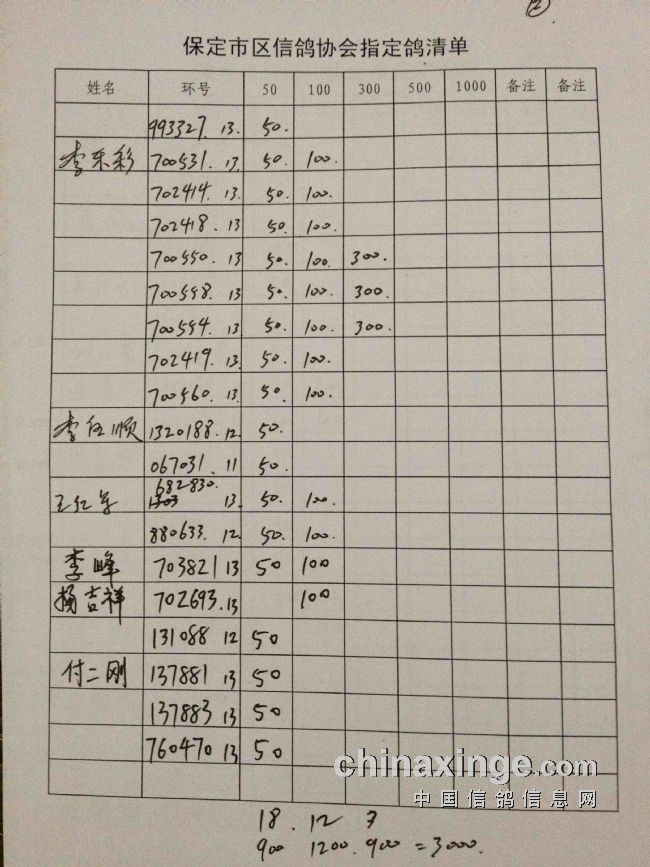 ②
保定市区信鸽协会指定鸽清单
姓名 环号 50 100 300 500 1000 备注 备注
993327. 13. 50.
李东彩 700531. 13. 50. 100.
702414. 13. 50. 100.
702418. 13 50. 100.
700550. 13 50. 100. 300.
700558. 13 50. 100. 300.
700554. 13 50. 100. 300.
702419. 13. 50. 100.
700560. 13. 50. 100.
李伍顺 1320188. 12. 50.
067031. 11 50.
682830.
王红军 13. 50. 100.
880633. 12. 50. 100.
李峰 703821 13 50 100
杨吉祥 702693. 13 100
131088 12 50
付二刚 137881 13 50
137883 13 50
760470 13 50
chinaxinge.com
中国信鸽信息网
18. 12 3
900 1200. 900 = 3000.